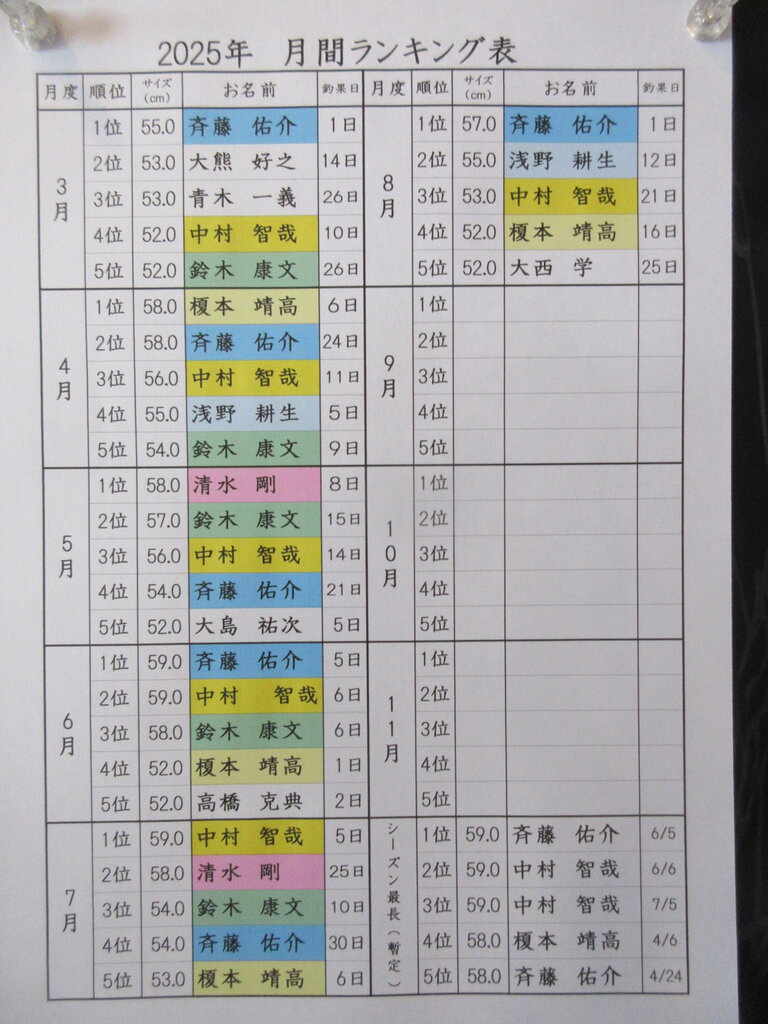 2025年 月間ランキング表
月度 順位 サイズ(cm) お名前 釣果日
3月
1位 55.0 斉藤 佑介 1日
2位 53.0 大熊 好之 14日
3位 53.0 青木 一義 26日
4位 52.0 中村 智哉 10日
5位 52.0 鈴木 康文 26日
4月
1位 58.0 榎本 靖高 6日
2位 58.0 斉藤 佑介 24日
3位 56.0 中村 智哉 11日
4位 55.0 浅野 耕生 5日
5位 54.0 鈴木 康文 9日
5月
1位 58.0 清水 剛 8日
2位 57.0 鈴木 康文 15日
3位 56.0 中村 智哉 14日
4位 54.0 斉藤 佑介 21日
5位 52.0 大島 祐次 5日
6月
1位 59.0 斉藤 佑介 5日
2位 59.0 中村 智哉 6日
3位 58.0 鈴木 康文 6日
4位 52.0 榎本 靖高 1日
5位 52.0 高橋 克典 2日
7月
1位 59.0 中村 智哉 5日
2位 58.0 清水 剛 25日
3位 54.0 鈴木 康文 10日
4位 54.0 斉藤 佑介 30日
5位 53.0 榎本 靖高 6日
月度 順位 サイズ(cm) お名前 釣果日
8月
1位 57.0 斉藤 佑介 1日
2位 55.0 浅野 耕生 12日
3位 53.0 中村 智哉 21日
4位 52.0 榎本 靖高 16日
5位 52.0 大西 学 25日
9月
1位
2位
3位
4位
5位
10月
1位
2位
3位
4位
5位
11月
1位
2位
3位
4位
5位
シーズン最長(暫定)
1位 59.0 斉藤 佑介 6/5
2位 59.0 中村 智哉 6/6
3位 59.0 中村 智哉 7/5
4位 58.0 榎本 靖高 4/6
5位 58.0 斉藤 佑介 4/24